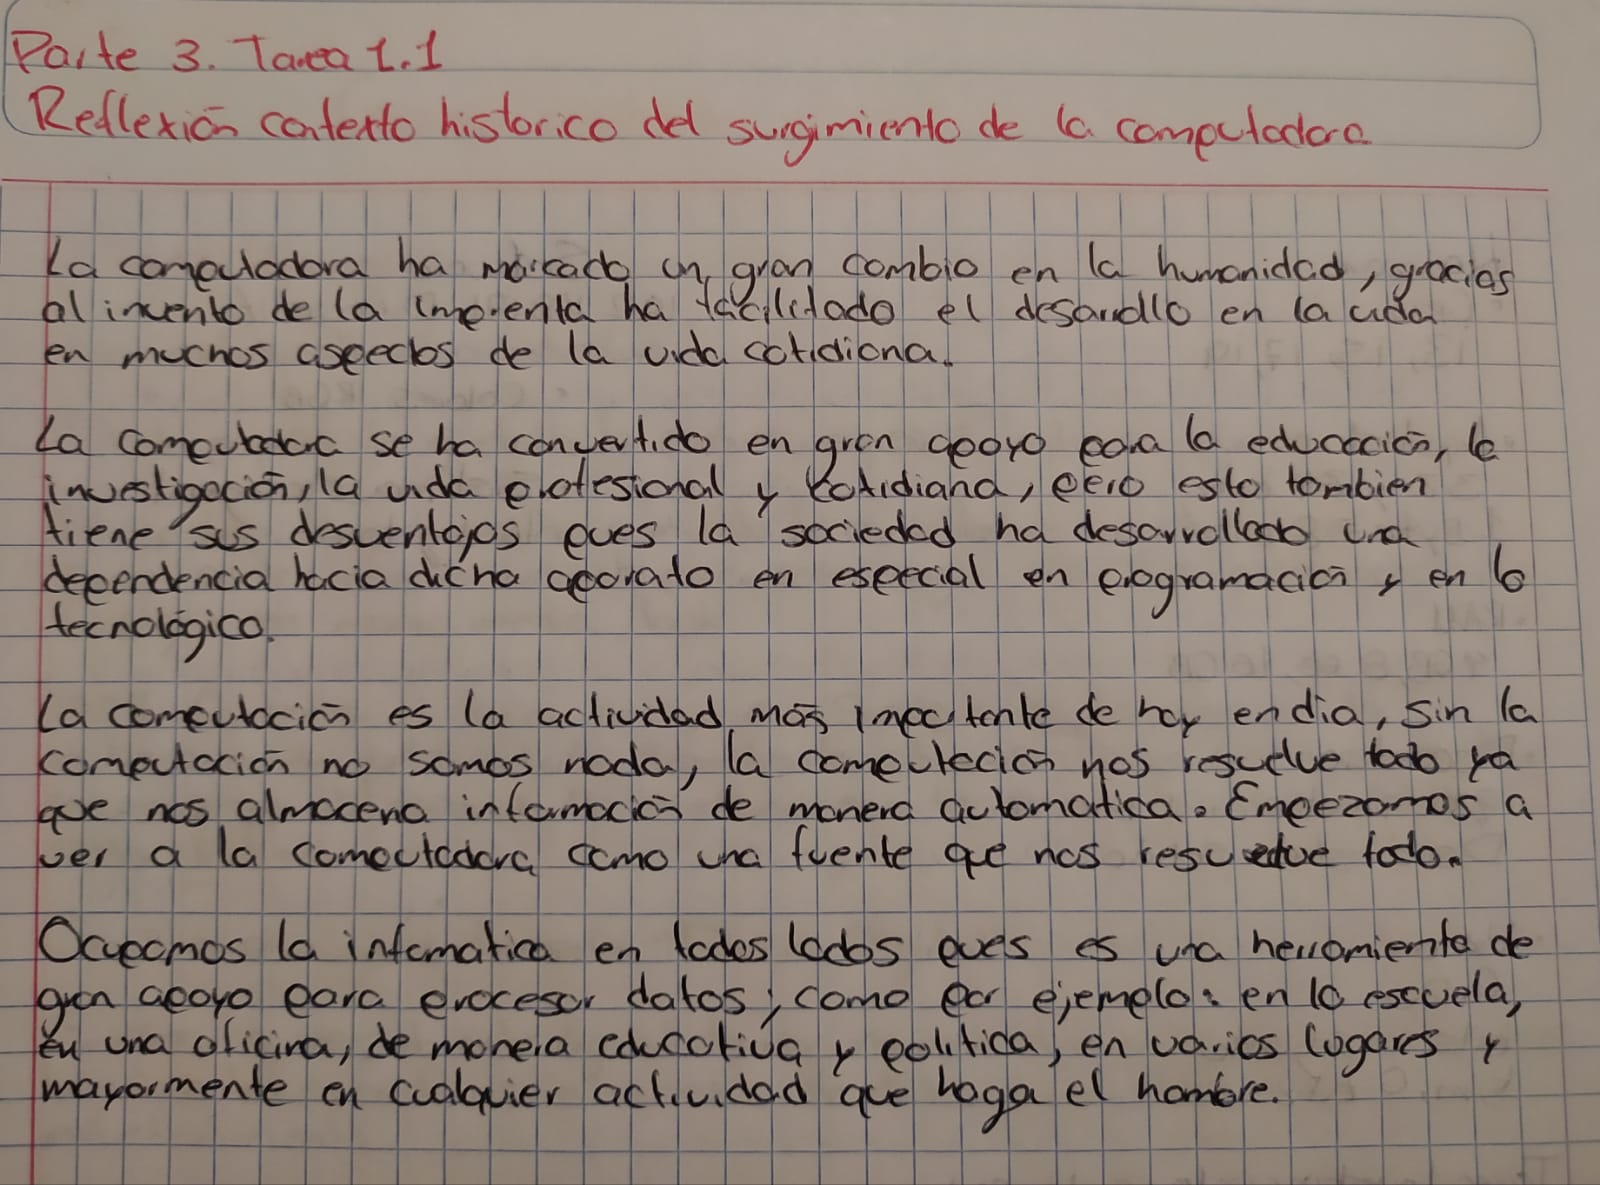 Parte 3. Tarea 1.1
Reflexión contexto historico del surgimiento de la computadora
La computadora ha marcado un gran cambio en la humanidad, gracias
al invento de la imprenta ha facilitado el desarrollo en la vida
en muchos aspectos de la vida cotidiana.
La computadora se ha convertido en gran apoyo para la educación, la
investigación, la vida profesional y cotidiana, pero esto tambien
tiene sus desventajas pues la sociedad ha desarrollado una
dependencia hacia dicho aparato en especial en programación y en lo
tecnológico.
La computación es la actividad más importante de hoy en dia, sin la
computación no somos nada, la computación nos resuelve todo ya
que nos almacena información de manera automatica. Empezamos a
ver a la computadora como una fuente que nos resuelve todo.
Ocupamos la informatica en todos lados pues es una herramienta de
gran apoyo para procesar datos; como por ejemplo: en la escuela,
en una oficina, de manera educativa y politica, en varios lugares y
mayormente en cualquier actividad que haga el hombre.